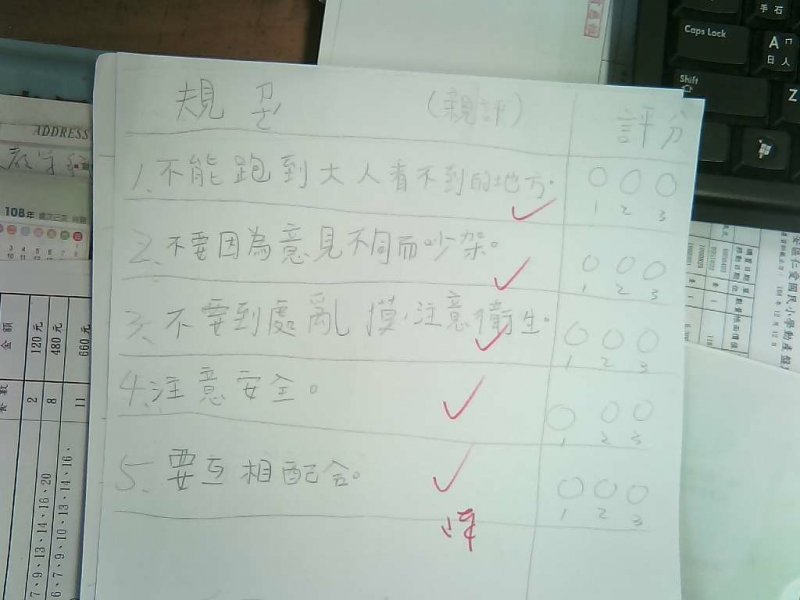 規 (親評) 評分
1、不能跑到大人看不到的地方。
1 2 3
2、不要因為意見不同而吵架。
1 2 3
3、不要到處亂摸,注意衛生。
1 2 3
4、注意安全。
1 2 3
5、要互相配合。
1 2 3
ADDRESS
108年
金額
120元
480元
660元
2
8
11
7、9、13、14、16、20
6、7、9、10、13、14、16、
Caps Lock
Shift
A
日
人
Z
手
石
安區仁愛國民小學動產盤